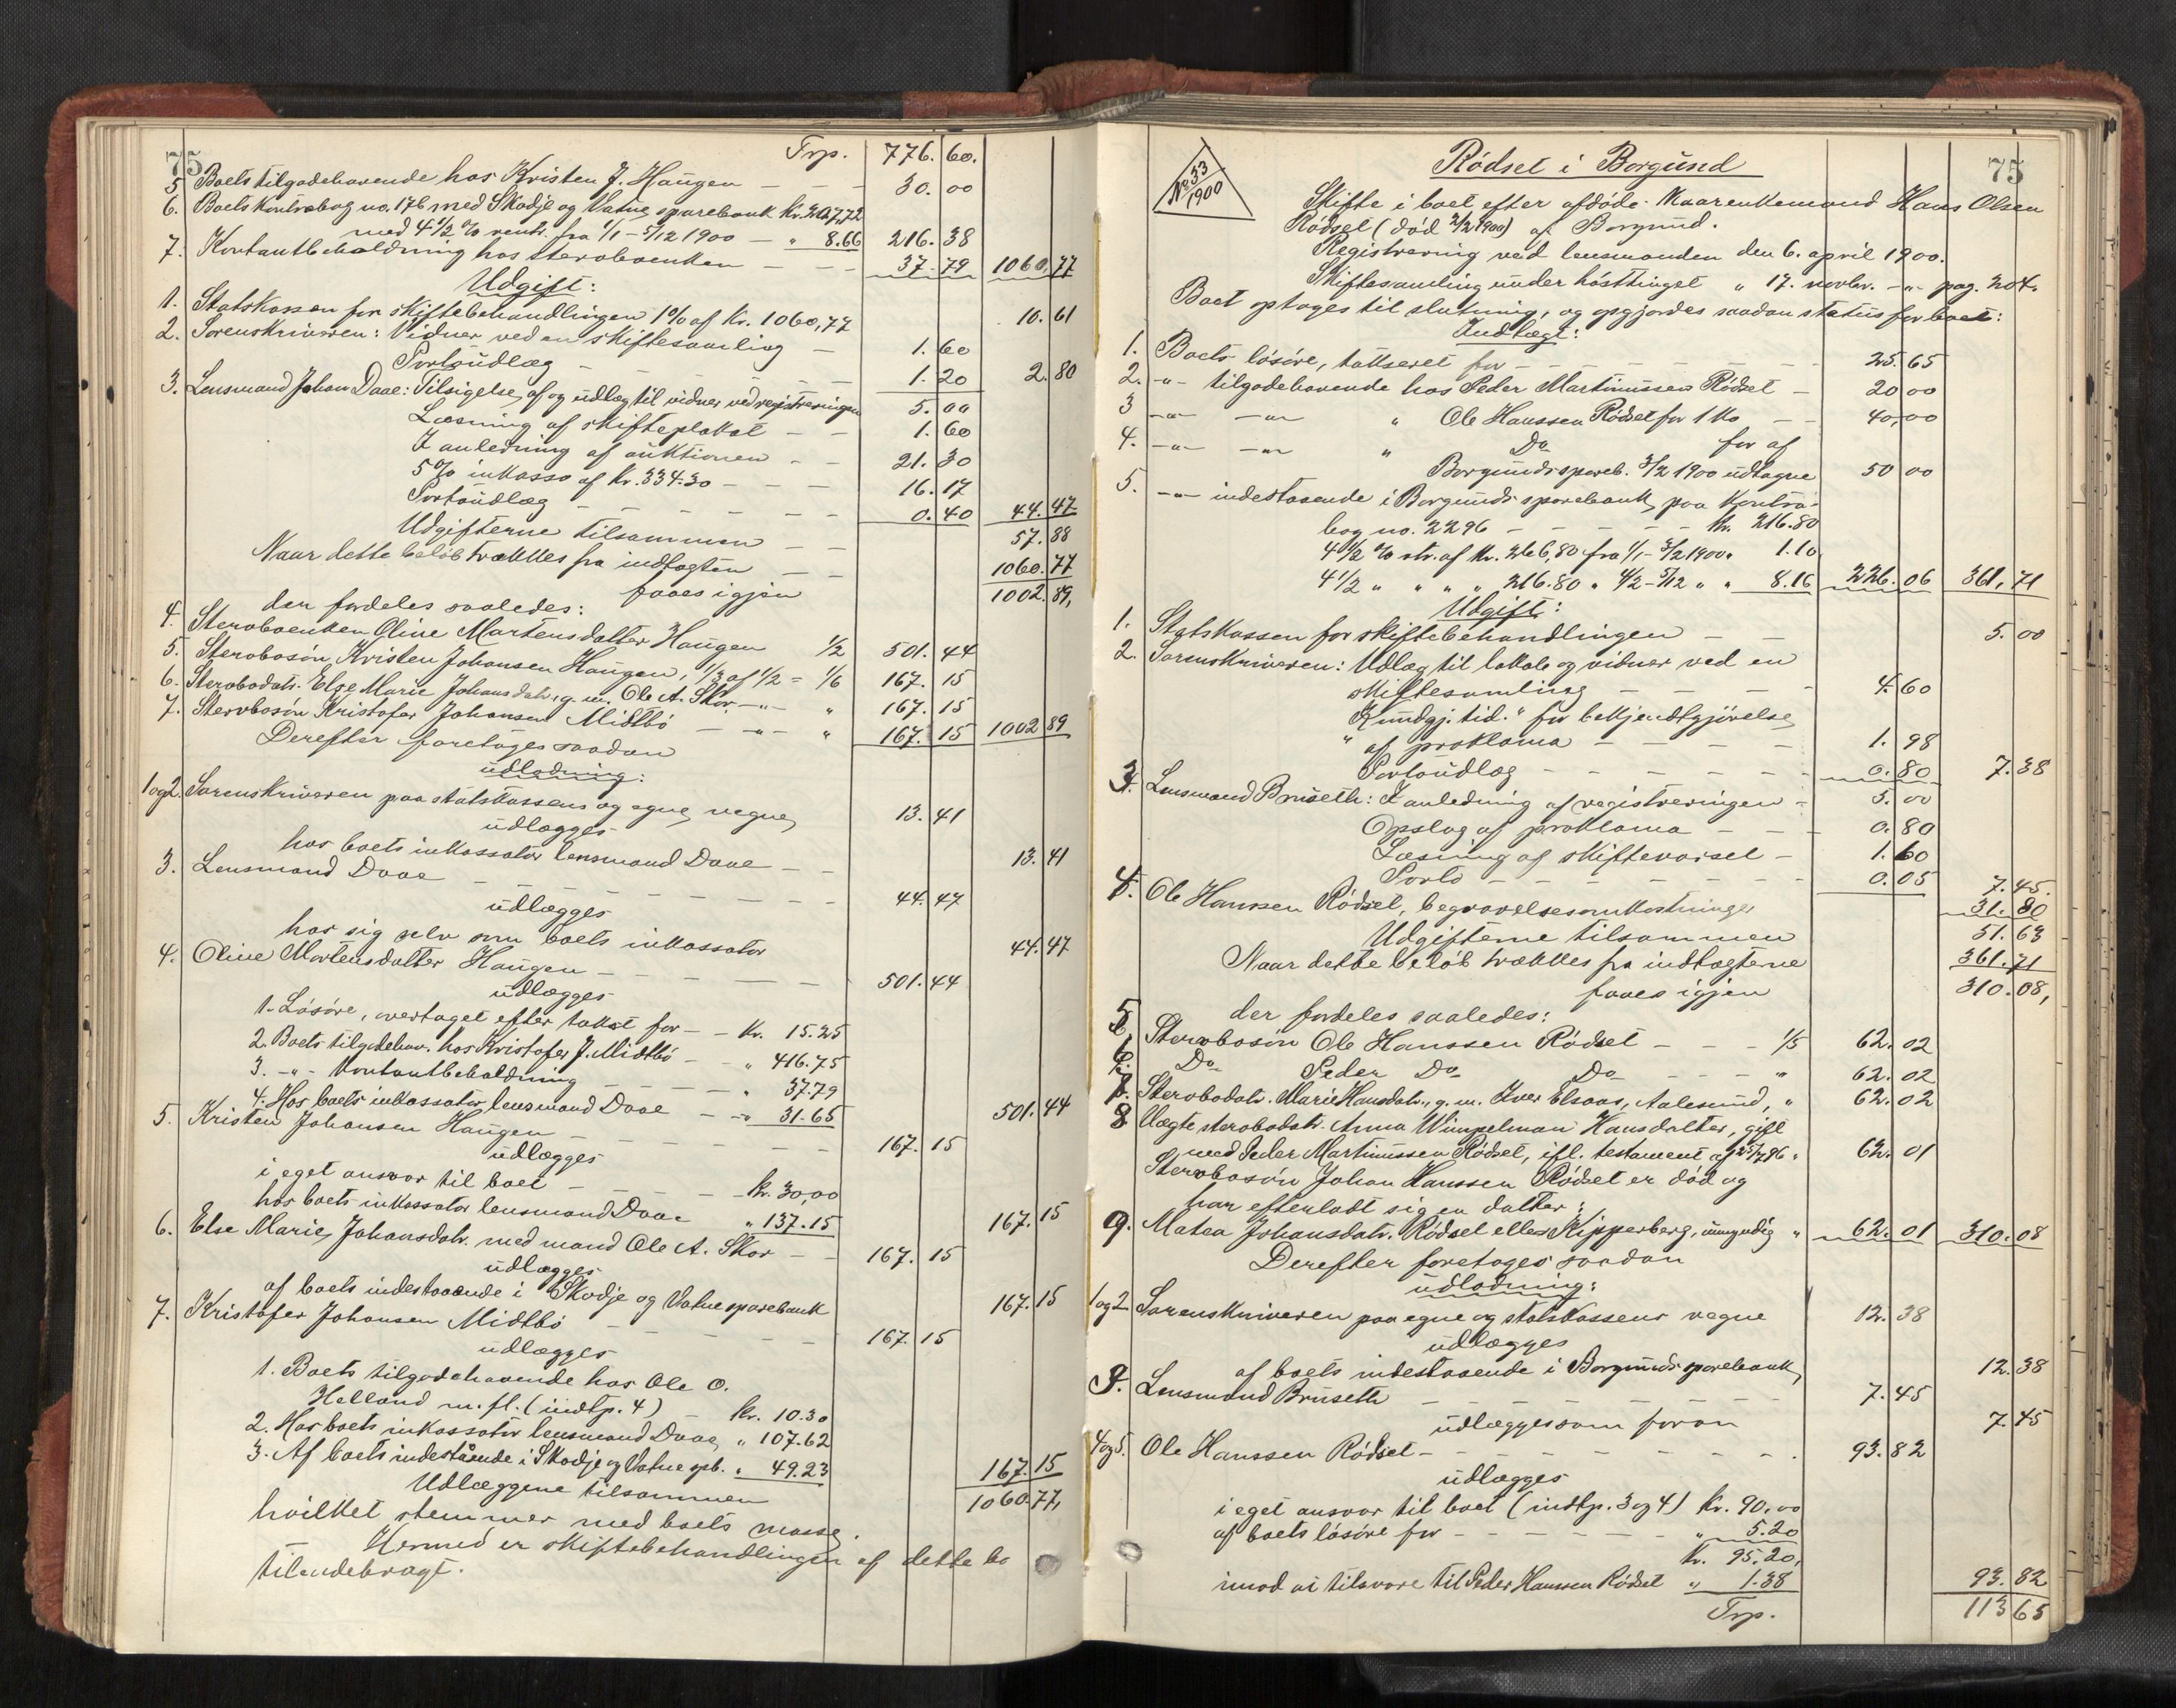 75
Trp. 776. 60.
5 Boets tilgodehavende hos Kristen J. Haugen — — — 30. 00
6. Boets kontrabog no. 176 med Skodje og Vatne sparebank Kr. 207,72
med 4 1/2 % rentr. fra 1/1 - 5/12 1900 — " 8.66 216. 38
7. Kontantbeholdning hos sterboenken — — — 37. 79 1060,77
Udgift:
1. Statskassen for skiftebehandlingen 1% af Kr. 1060,77 10. 61
2. Sorenskriveren: Vidner ved en skiftesamling — 1. 60
Portoudlæg — — — 1. 20 2. 80
3. Lensmand Johan Daae: Tilsigelse af og udlæg til vidner ved registreringen 5. 00
Læsning af skifteplakat — — 1. 60
I anledning af auktionen — — 21. 30
5% inkasso af Kr. 334.30 — — — 16. 17
Portoudlæg — — — — — 0. 40 44. 47
Udgifterne tilsammen — — 57. 88
Naar dette beløb trækkes fra indtægten — — 1060. 77
faaes igjen 1002. 89,
der fordeles saaledes:
4. Sterboenken Oline Martensdatter Haugen 1/2 501. 44
5. Stervbosøn Kristen Johansen Haugen, 1/3 af 1/2 = 1/6 167. 15
6. Stervbodatr. Else Marie Johansdatr., g. m. Ole A. Skor — " — " 167. 15
7. Stervbosøn Kristofer Johansen Midtbø — " — " 167. 15 1002 89
Derefter foretages saadan
udlodning:
1 og 2. Sorenskriveren paa statskassens og egne vegne 13. 41
udlægges
hos boets inkassator lensmand Daae — — 13. 41
3. Lensmand Daae — — — — — — 44. 47
udlægges
hos sig selv som boets inkassator 44. 47
4. Oline Martensdatter Haugen — — — — 501. 44
udlægges
1. Løsøre, overtaget efter takst for — — Kr. 15.25
2. Boets tilgodehav. hos Kristofer J. Midtbø — " 416.75
3. — " — Kontantbeholdning — — — " 37.79
4. Hos boets inkassator lensmand Daae — " 31.65 501. 44
5. Kristen Johansen Haugen — — — — — 167. 15
udlægges
i eget ansvar til boet — — — — Kr. 30,00
hos boets inkassator lensmand Daae " 137.15 167. 15
6. Else Marie Johansdatr. med mand Ole A. Skor — — 167. 15
udlægges
af boets indestaaende i Skodje og Vatne sparebank 167. 15
7. Kristofer Johansen Midtbø — — — — 167. 15
udlægges
1. Boets tilgodehavende hos Ole O.
Helland m. fl. (indtp. 4) — Kr. 10.30
2. Hos boets inkassator lensmand Daae " 107.62
3. Af boets indestående i Skodje og Vatne spb. " 49.23 167. 15
Udlæggene tilsammen 1060.77,
hvilket stemmer med boets masse.
Hermed er skiftebehandlingen af dette bo
tilendebragt.
75
No 33
1900
Rødset i Borgund
Skifte i boet efter afdøde Kaarenkemand Hans Olsen
Rødset (død 3/2 1900) af Borgund.
Registrering ved lensmanden den 6. april 1900.
Skiftesamling under høsttinget " 17. novbr. — " — pag. 204.
Boet optoges til slutning, og opgjordes saadan status for boet:
Indtægt:
1. Boets løsøre, takseret for — — — — — 25. 65
2. — " — tilgodehavende hos Peder Martinussen Rødset — 20 00
3 — " — — " — " Ole Hanssen Rødset for 1 Ko — — 40, 00
4. — " — — " — " Do for af
Borgunds spareb. 3/2 1900 udtagne 50 00
5. — " — indestaaende i Borgunds sparebank paa kontra-
bog no. 2296 — — — — — Kr. 216.80
4 1/2 % rtr. af Kr. 266,80 fra 1/1 - 3/2 1900 " 1.10
4 1/2 " " " " 216.80 " 4/2 - 5/12 " " 8.16 226. 06 361, 71
Udgift:
1. Statskassen for skiftebehandlingen — — 5. 00
2. Sorenskriveren: Udlæg til lokale og vidner ved en
skiftesamling — — — — 4. 60
"Kundgj. tid." for bekjendtgjørelse
af proklama — — — — 1. 98
Portoudlæg — — — — — 0. 80 7. 38
3. Lensmand Bruseth: I anledning af registreringen — 5. 00
Opslag af proklama — — — 0. 80
Læsning af skiftevarsel — 1. 60
Porto — — — — — — 0. 05 7. 45.
4. Ole Hanssen Rødset, begravelsesomkostninger 31. 80
Udgifterne tilsammen 51. 63
Naar dette beløb trækkes fra indtægterne 361. 71
faaes igjen 310. 08,
der fordeles saaledes:
5. Stervbosøn Ole Hanssen Rødset — — — 1/5 62. 02
6. Do Peder Do Do — — — " 62. 02
7. Stervbodatr. Marie Hansdatr., g. m. Iver Elsaas, Aalesund, " 62. 02
8 Uægte stervbodatr. Anna Wimpelman Hansdatter, gift
med Peder Martinussen Rødset, ifl. testament af 25/7 86 " 62. 01
Stervbosøn Johan Hanssen Rødset er død og
har efterladt sig en datter:
9. Matea Johansdatr. Rødset eller Kipperberg, umyndig " 62. 01 310. 08
Derefter foretages saadan
udlodning:
1 og 2 Sorenskriveren paa egne og statskassens vegne 12. 38
udlægges
af boets indestaaende i Borgunds sparebank, 12. 38
3. Lensmand Bruseth — — — — — — 7. 45
udlægges som foran 7. 45
4 og 5. Ole Hanssen Rødset — — — — — — 93. 82
udlægges
i eget ansvar til boet (indtp. 3 og 4) Kr. 90,00
af boets løsøre for — — — — — " 5.20
Kr. 95.20,
imod at tilsvare til Peder Hanssen Rødset " 1.38 93. 82
Trp. 113 65